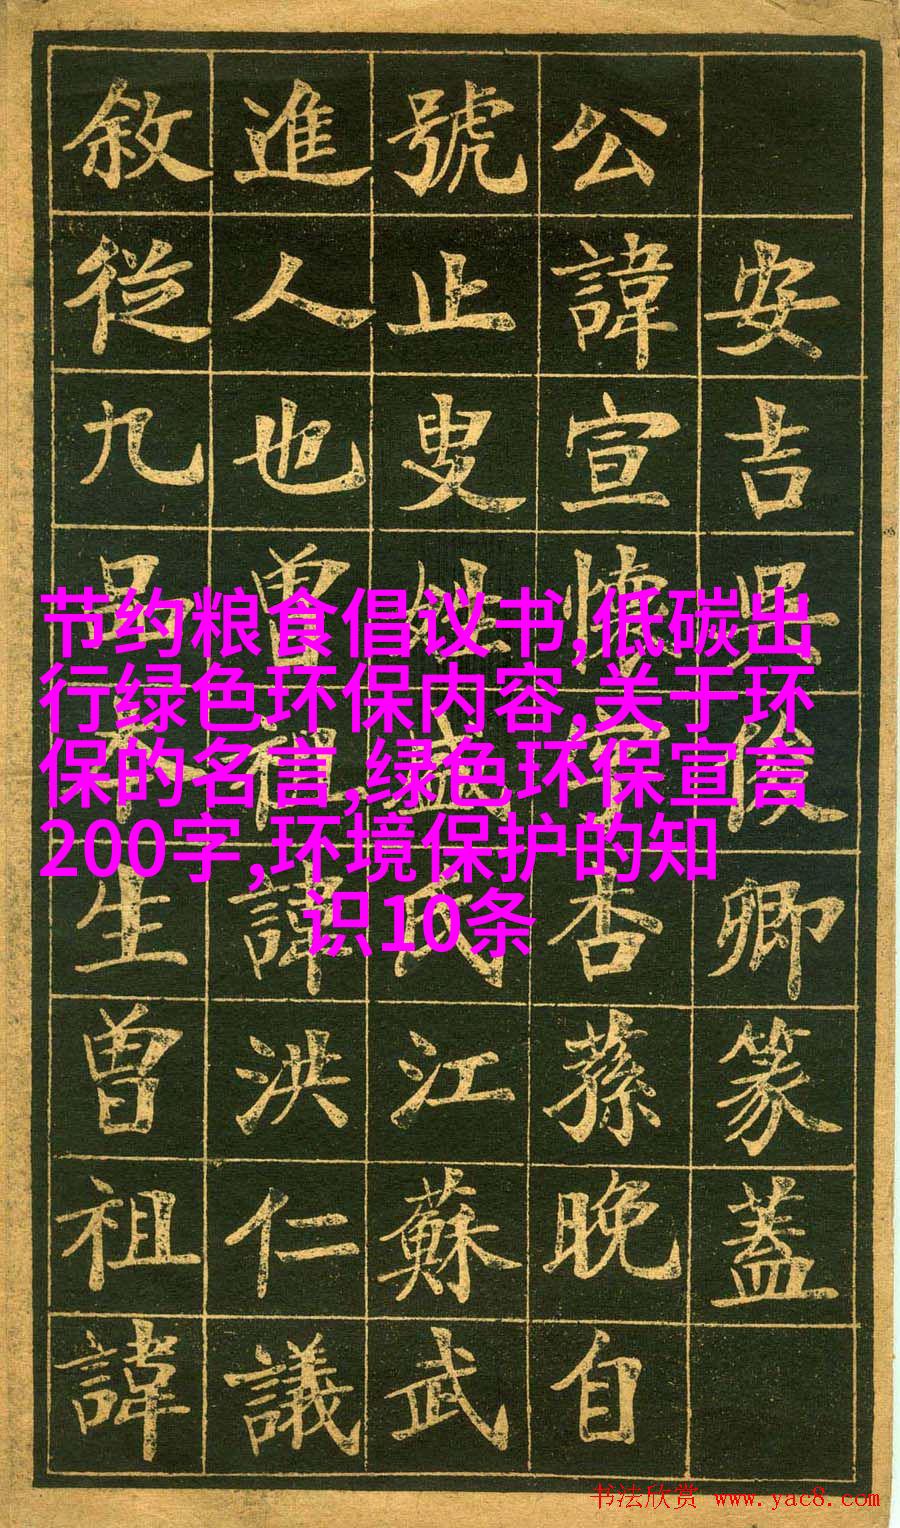 安吉吳俊卿篆蓋
公諱宣懷字杏蓀晚自
號止叟姓盛氏江蘇武
進人也曾祖諱洪仁議
敘從九品生曾祖諱
节约粮食倡议书,低碳出
行绿色环保内容,关于环
保的名言,绿色环保宣言
200字,环境保护的知
识10条
书法欣赏 www.yac8.com